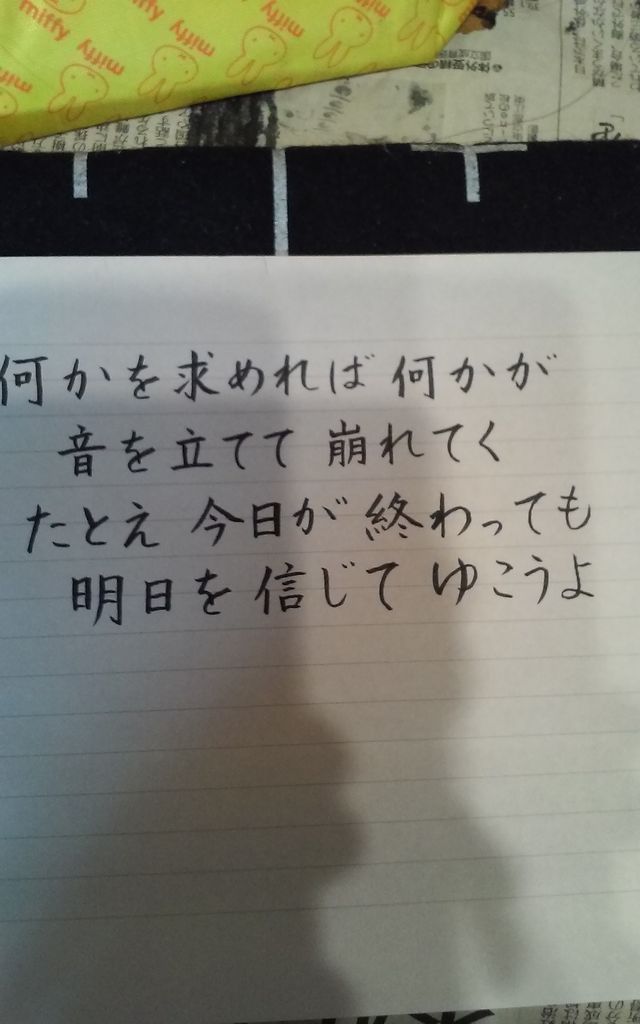 miffy miffy miffy miffy
miffy miffy miffy
何かを求めれば 何かが
音を立てて 崩れてく
たとえ 今日が 終わっても
明日を 信じて ゆこうよ